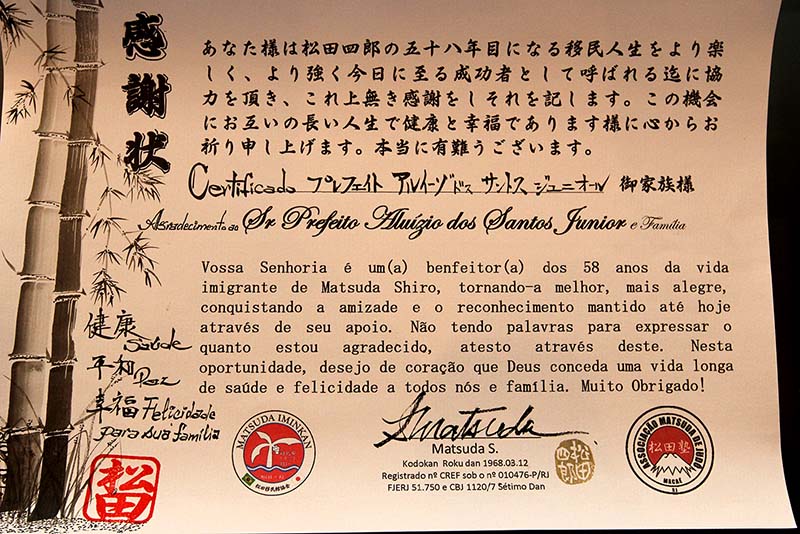 感謝状
あなた様は松田四郎の五十八年目になる移民人生をより楽
しく、より強く今日に至る成功者として呼ばれる迄に協
力を頂き、これ上無き感謝をしそれを記します。この機会
にお互いの長い人生で健康と幸福であります様に心からお
祈り申し上げます。本当に有難うございます。
Certificado プレフェイト アルイーゾドス サントス ジュニオール 御家族様
Agradecimento ao Sr Prefeito Aluízio dos Santos Junior e Família
Vossa Senhoria é um(a) benfeitor(a) dos 58 anos da vida
imigrante de Matsuda Shiro, tornando-a melhor, mais alegre,
conquistando a amizade e o reconhecimento mantido até hoje
através de seu apoio. Não tendo palavras para expressar o
quanto estou agradecido, atesto através deste. Nesta
oportunidade, desejo de coração que Deus conceda uma vida longa
de saúde e felicidade a todos nós e família. Muito Obrigado!
健康 Saúde
平和 Paz
幸福 Felicidade
para sua família
松田
MATSUDA IMINKAN
松田移民館協会
S Matsuda
Matsuda S.
Kodokan Roku dan 1968.03.12
Registrado nº CREF sob o nº 010476-P/RJ
FJERJ 51.750 e CBJ 1120/7 Sétimo Dan
松田四郎
ASSOCIAÇÃO MATSUDA DE JUDÔ
松田塾
MACAÉ
RJ